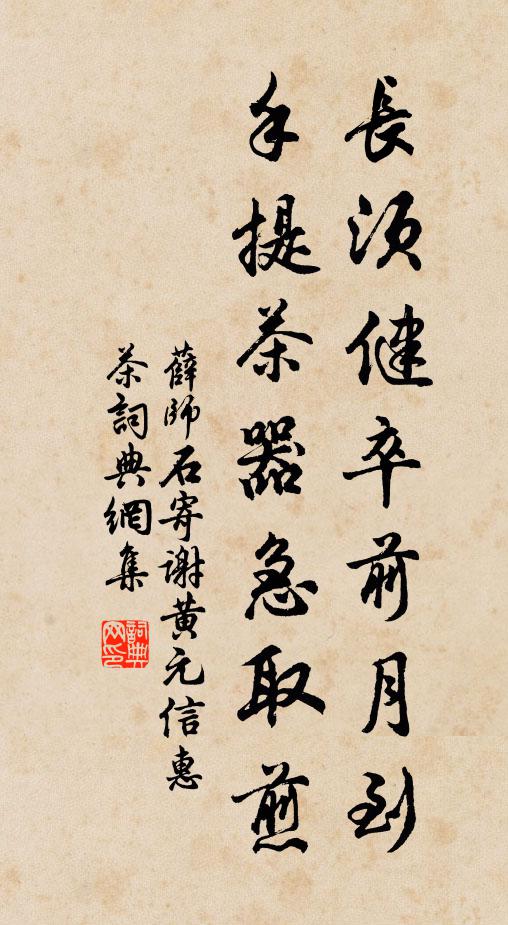 長須健卒前月到
手提茶器急取煎
薛師石寄謝黃元信惠
茶詞典網集
詞典網印